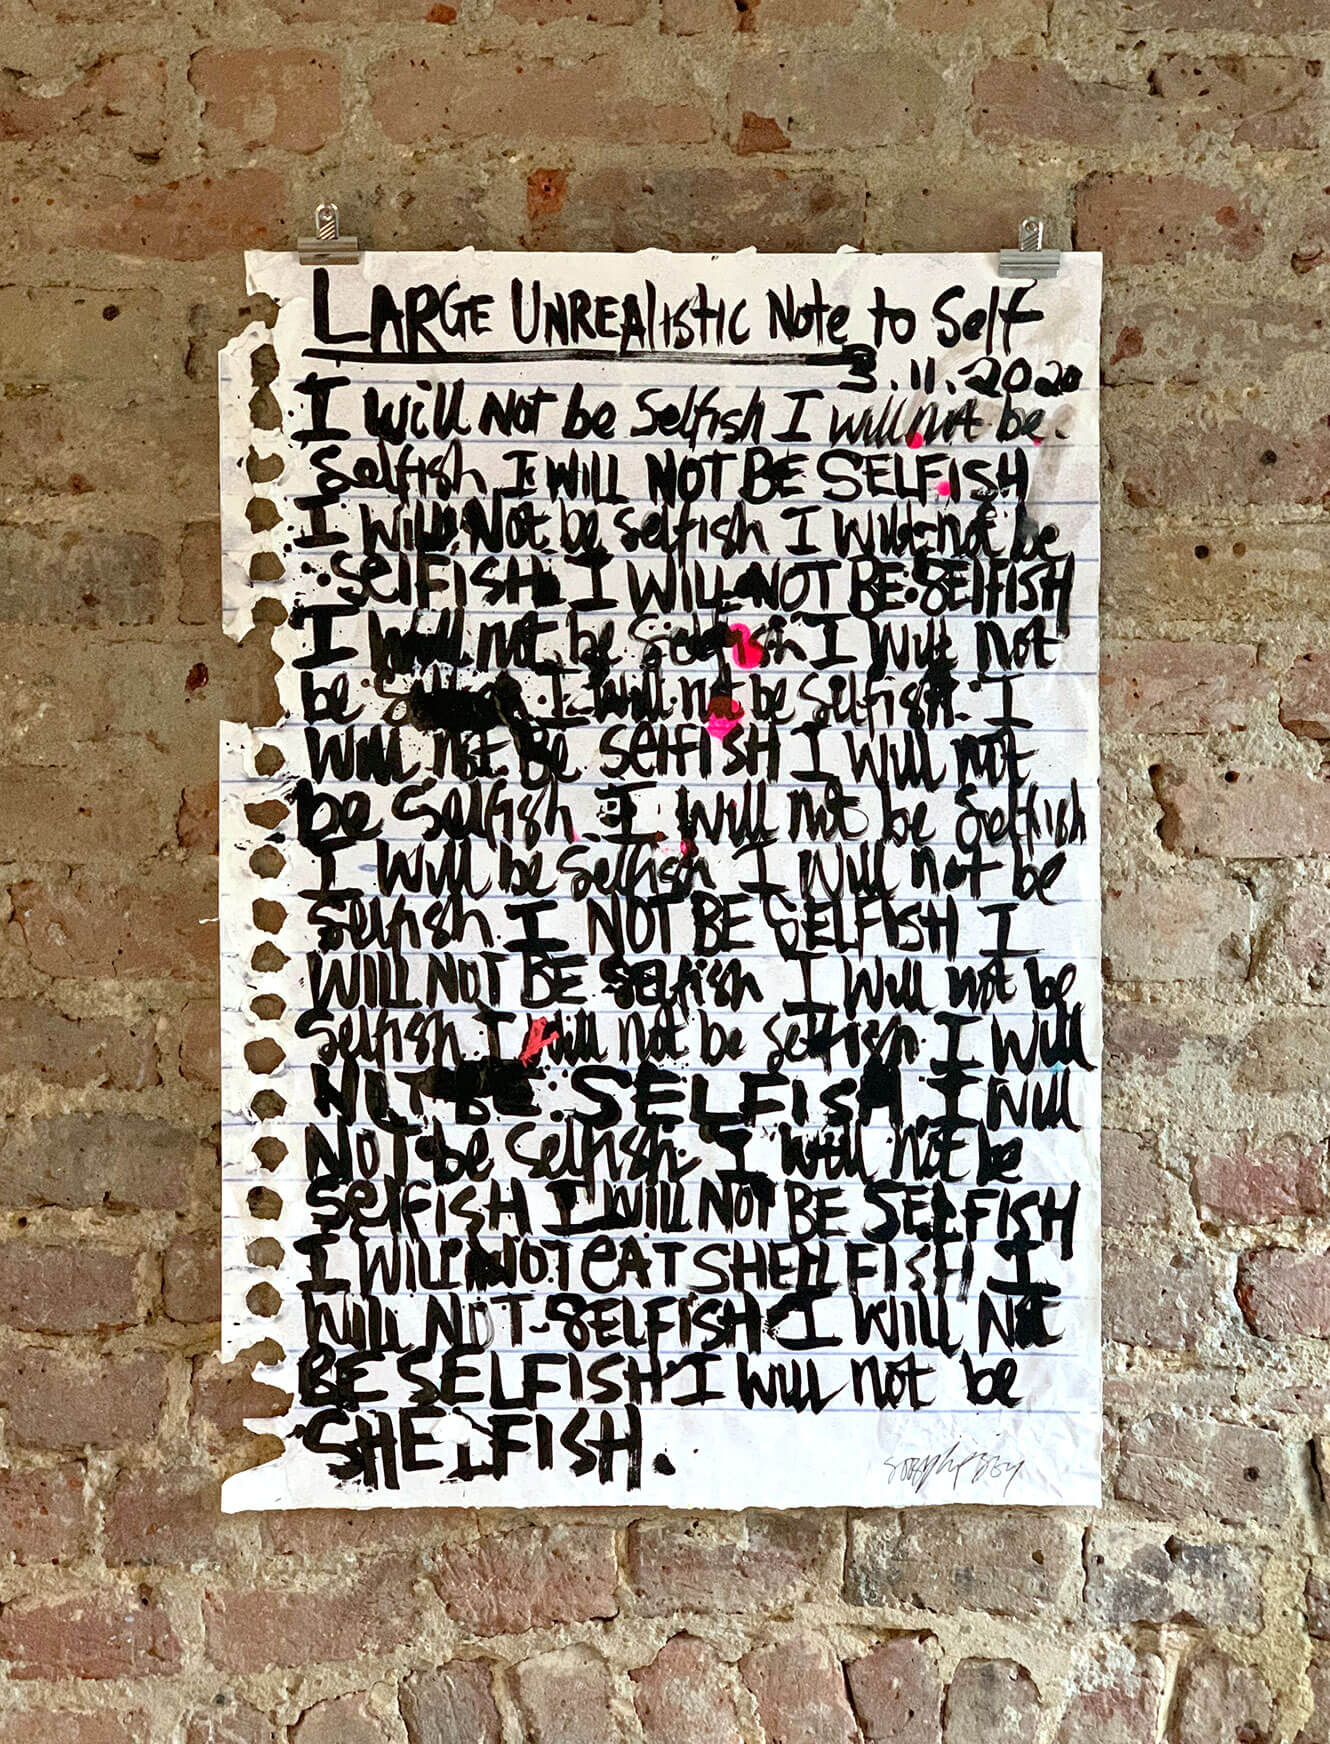 LARGE UNREAlistic Note to Self
3.11.2020
I will Not be Selfish I will not be
Selfish I WILL NOT BE SELFISH
I will Not be selfish I will not be
SELFISH I WILL NOT BE SELFISH
I will not be selfish I will not
be I will not be selfish. I
will not Be SelfISH I will not
be Selfish. I will not be Selfish
I will be Selfish I will not be
Selfish I NOT BE SELFISH I
WILL NOT BE Selfish I will not be
Selfish I will not be selfish I will
NOT BE SELFISH I will
NOT be Selfish I will not be
SelfISH I WILL NOT BE SELFISH
I WILL NOT EAT SHELLFISH I
WILL NOT-SELFISH I WILL Not
BE SELFISH I will not be
SHELFISH.